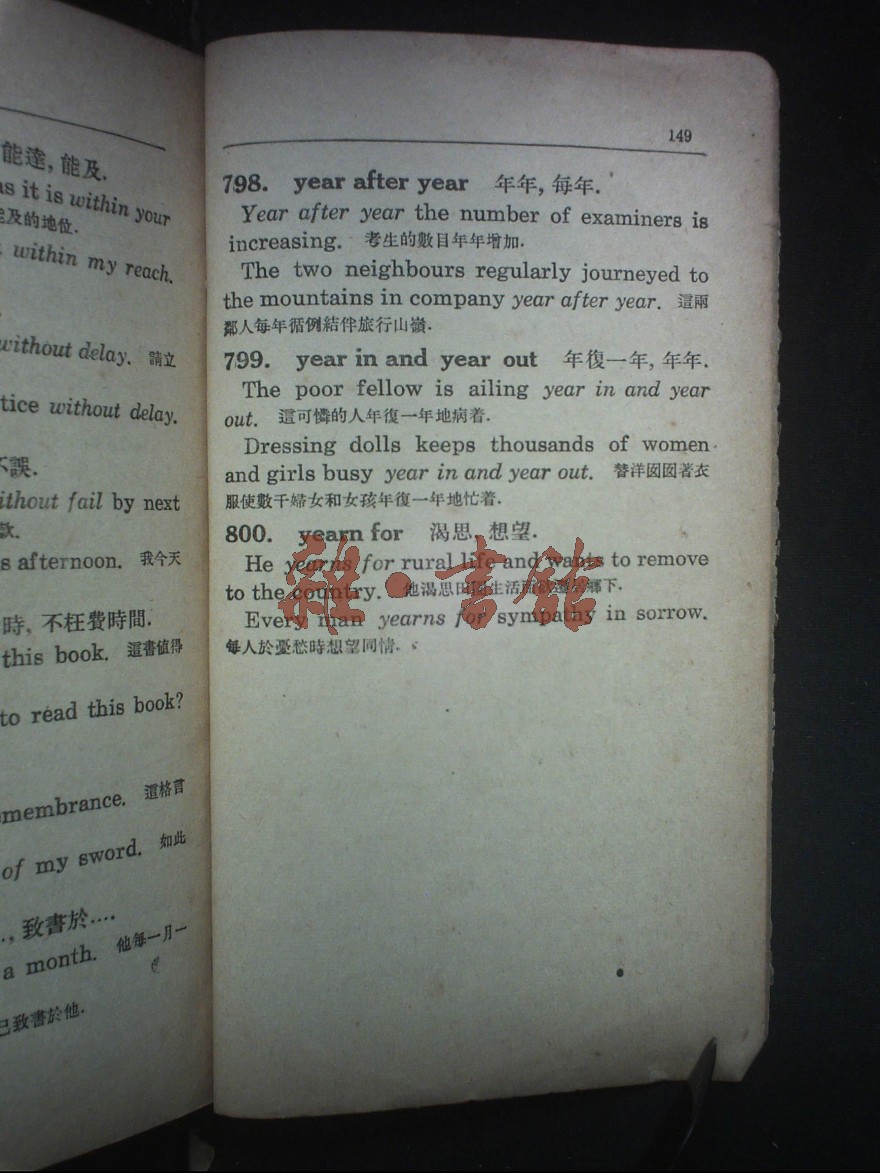 能達, 能及.
as it is within your
能及的地位.
within my reach.
without delay. 請立
tice without delay.
不誤.
without fail by next
款.
s afternoon. 我今天
時, 不枉費時間.
this book. 這書值得
to read this book?
emembrance. 這格言
of my sword. 如此
.., 致書於....
a month. 他每一月一
已致書於他.
149
798. year after year 年年, 每年.
Year after year the number of examiners is
increasing. 考生的數目年年增加.
The two neighbours regularly journeyed to
the mountains in company year after year. 這兩
鄰人每年循例結伴旅行山嶺.
799. year in and year out 年復一年, 年年.
The poor fellow is ailing year in and year
out. 這可憐的人年復一年地病着.
Dressing dolls keeps thousands of women
and girls busy year in and year out. 替洋囡囡著衣
服使數千婦女和女孩年復一年地忙着.
800. yearn for 渴思, 想望.
He yearns for rural life and wants to remove
to the country. 他渴思田園生活而欲遷居鄉下.
Every man yearns for sympathy in sorrow.
每人於憂愁時想望同情.
雜·書館